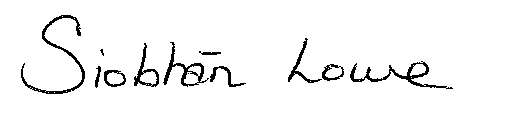 Siobhān Lowe